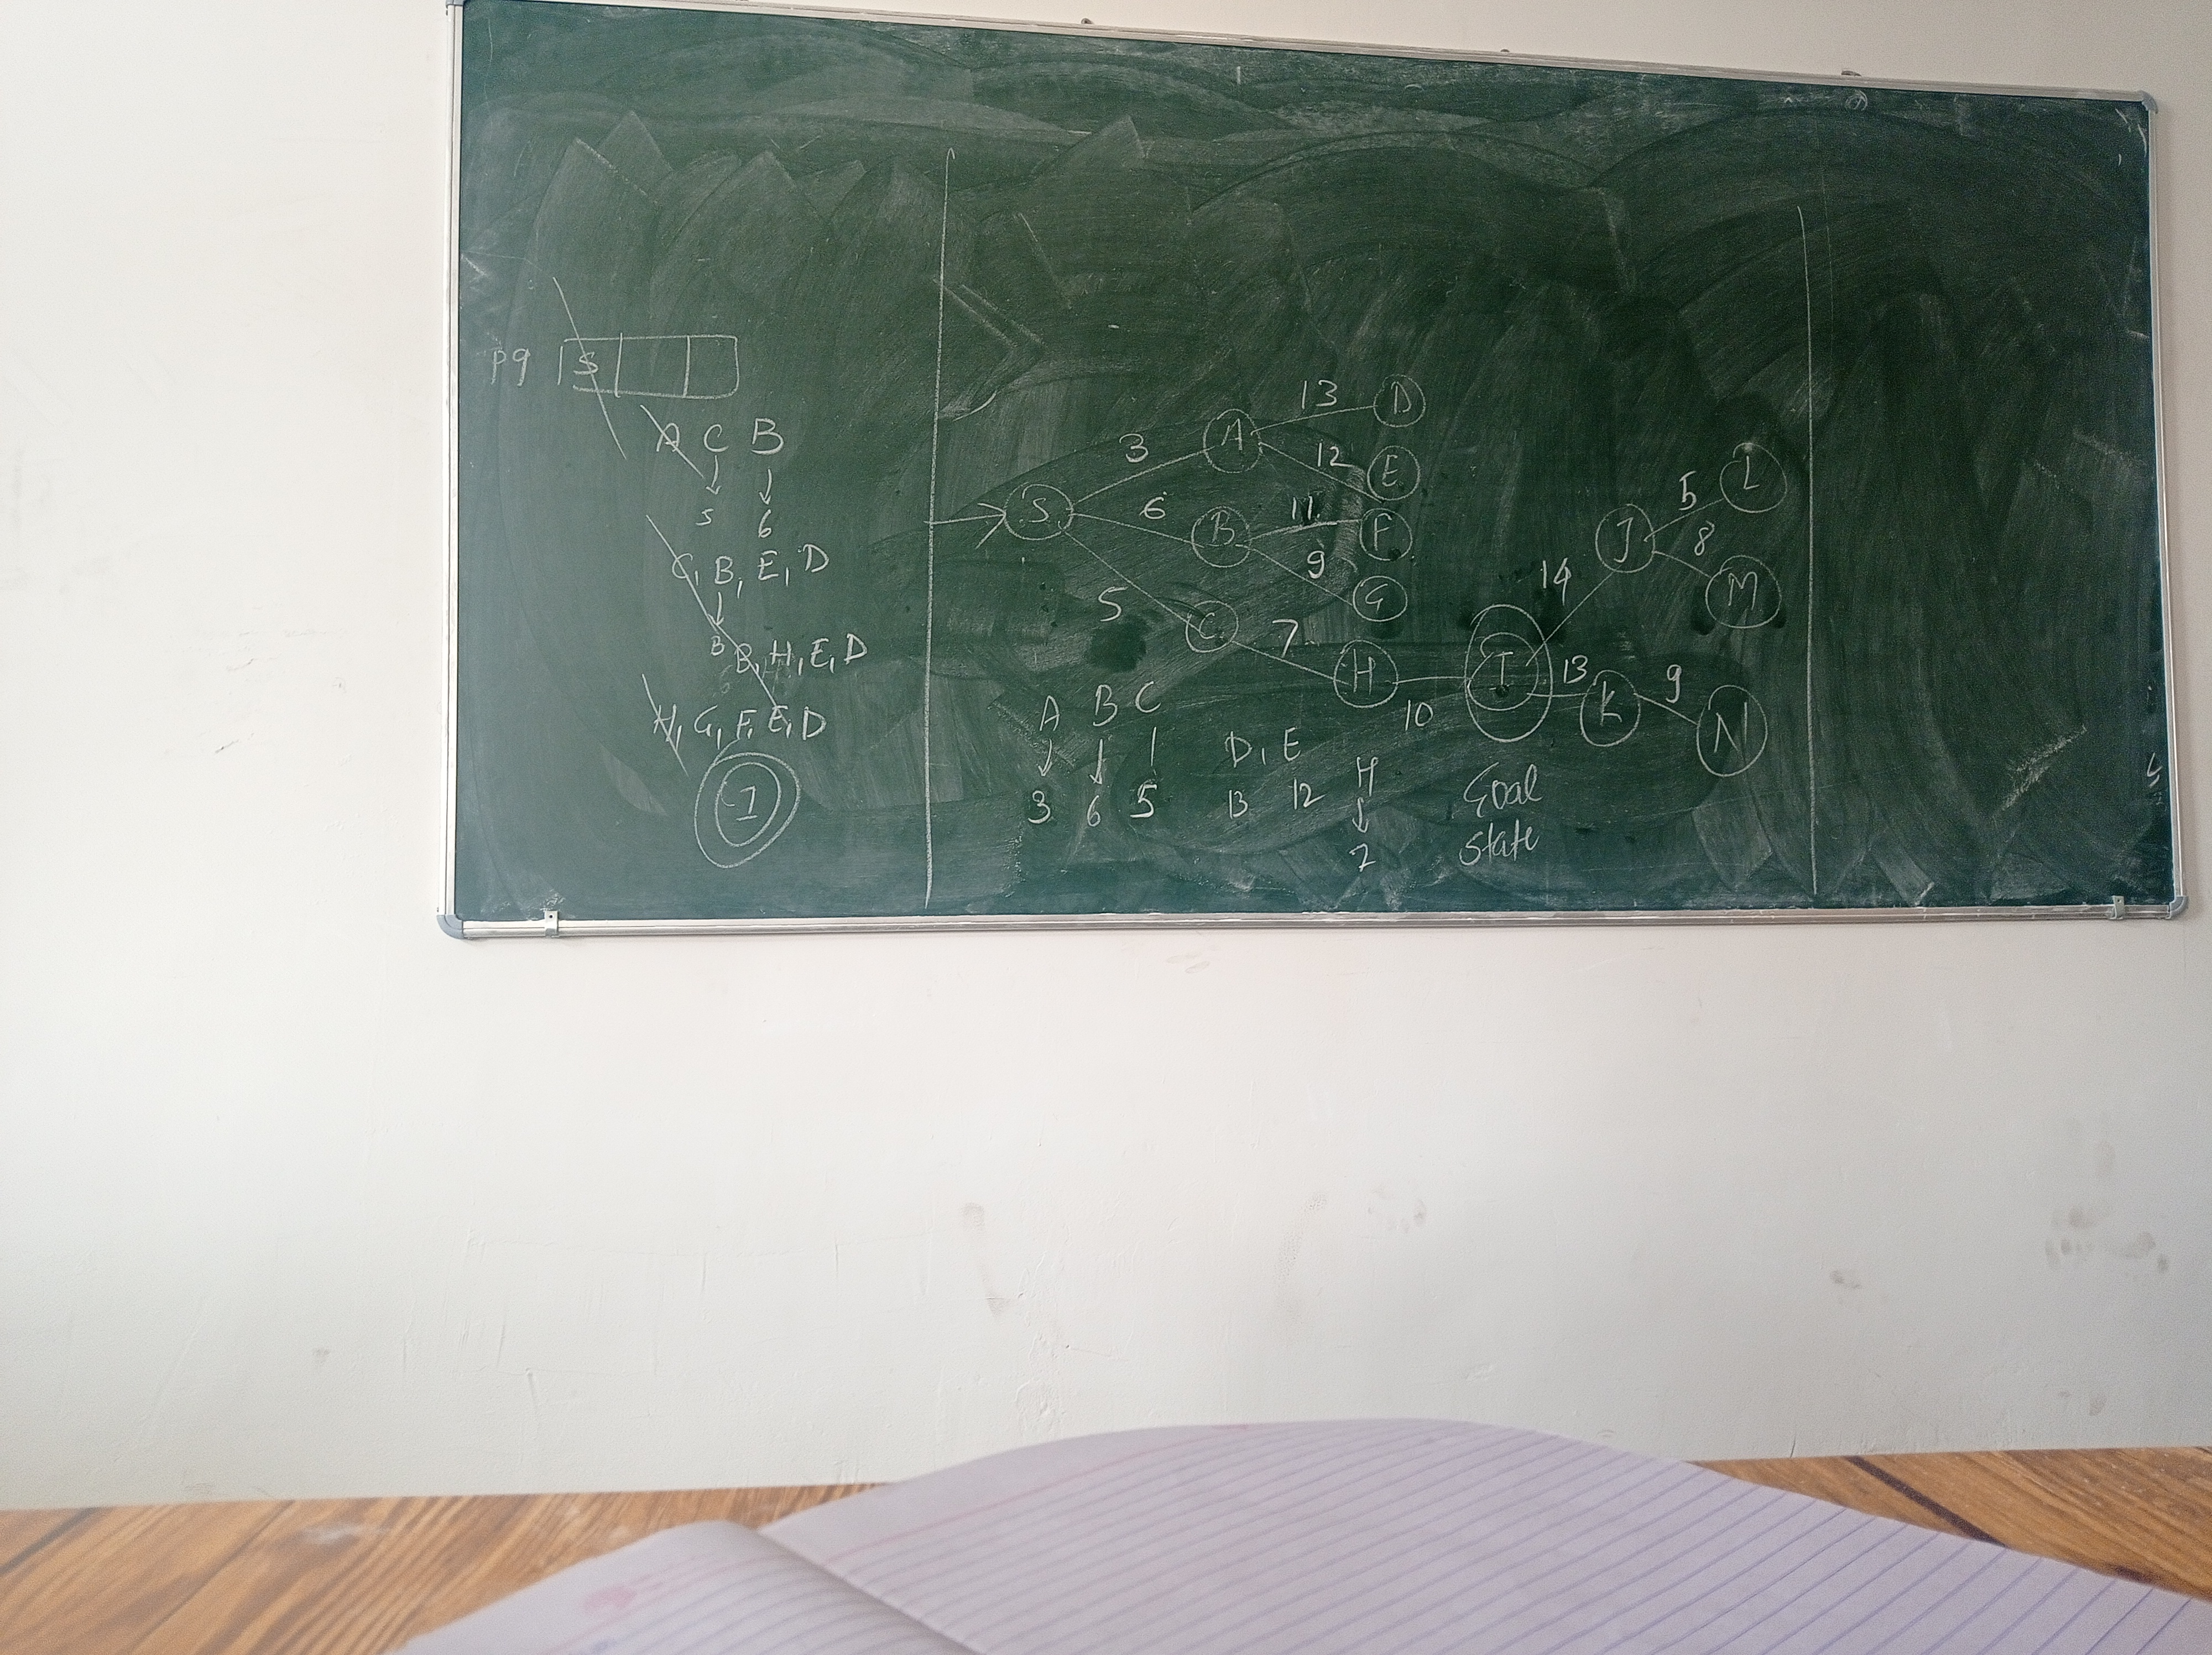 pq S
A C B
5 6
C, B, E, D
B
B, H, E, D
6
H, G, F, E, D
I
S
3 A 13 D
12 E
6 B 11 F
9 G
5 C 7 H
10 I
14 J 5 L
8 M
13 K 9 N
A B C
3 6 5
D, E
13 12
H
7
Goal
State